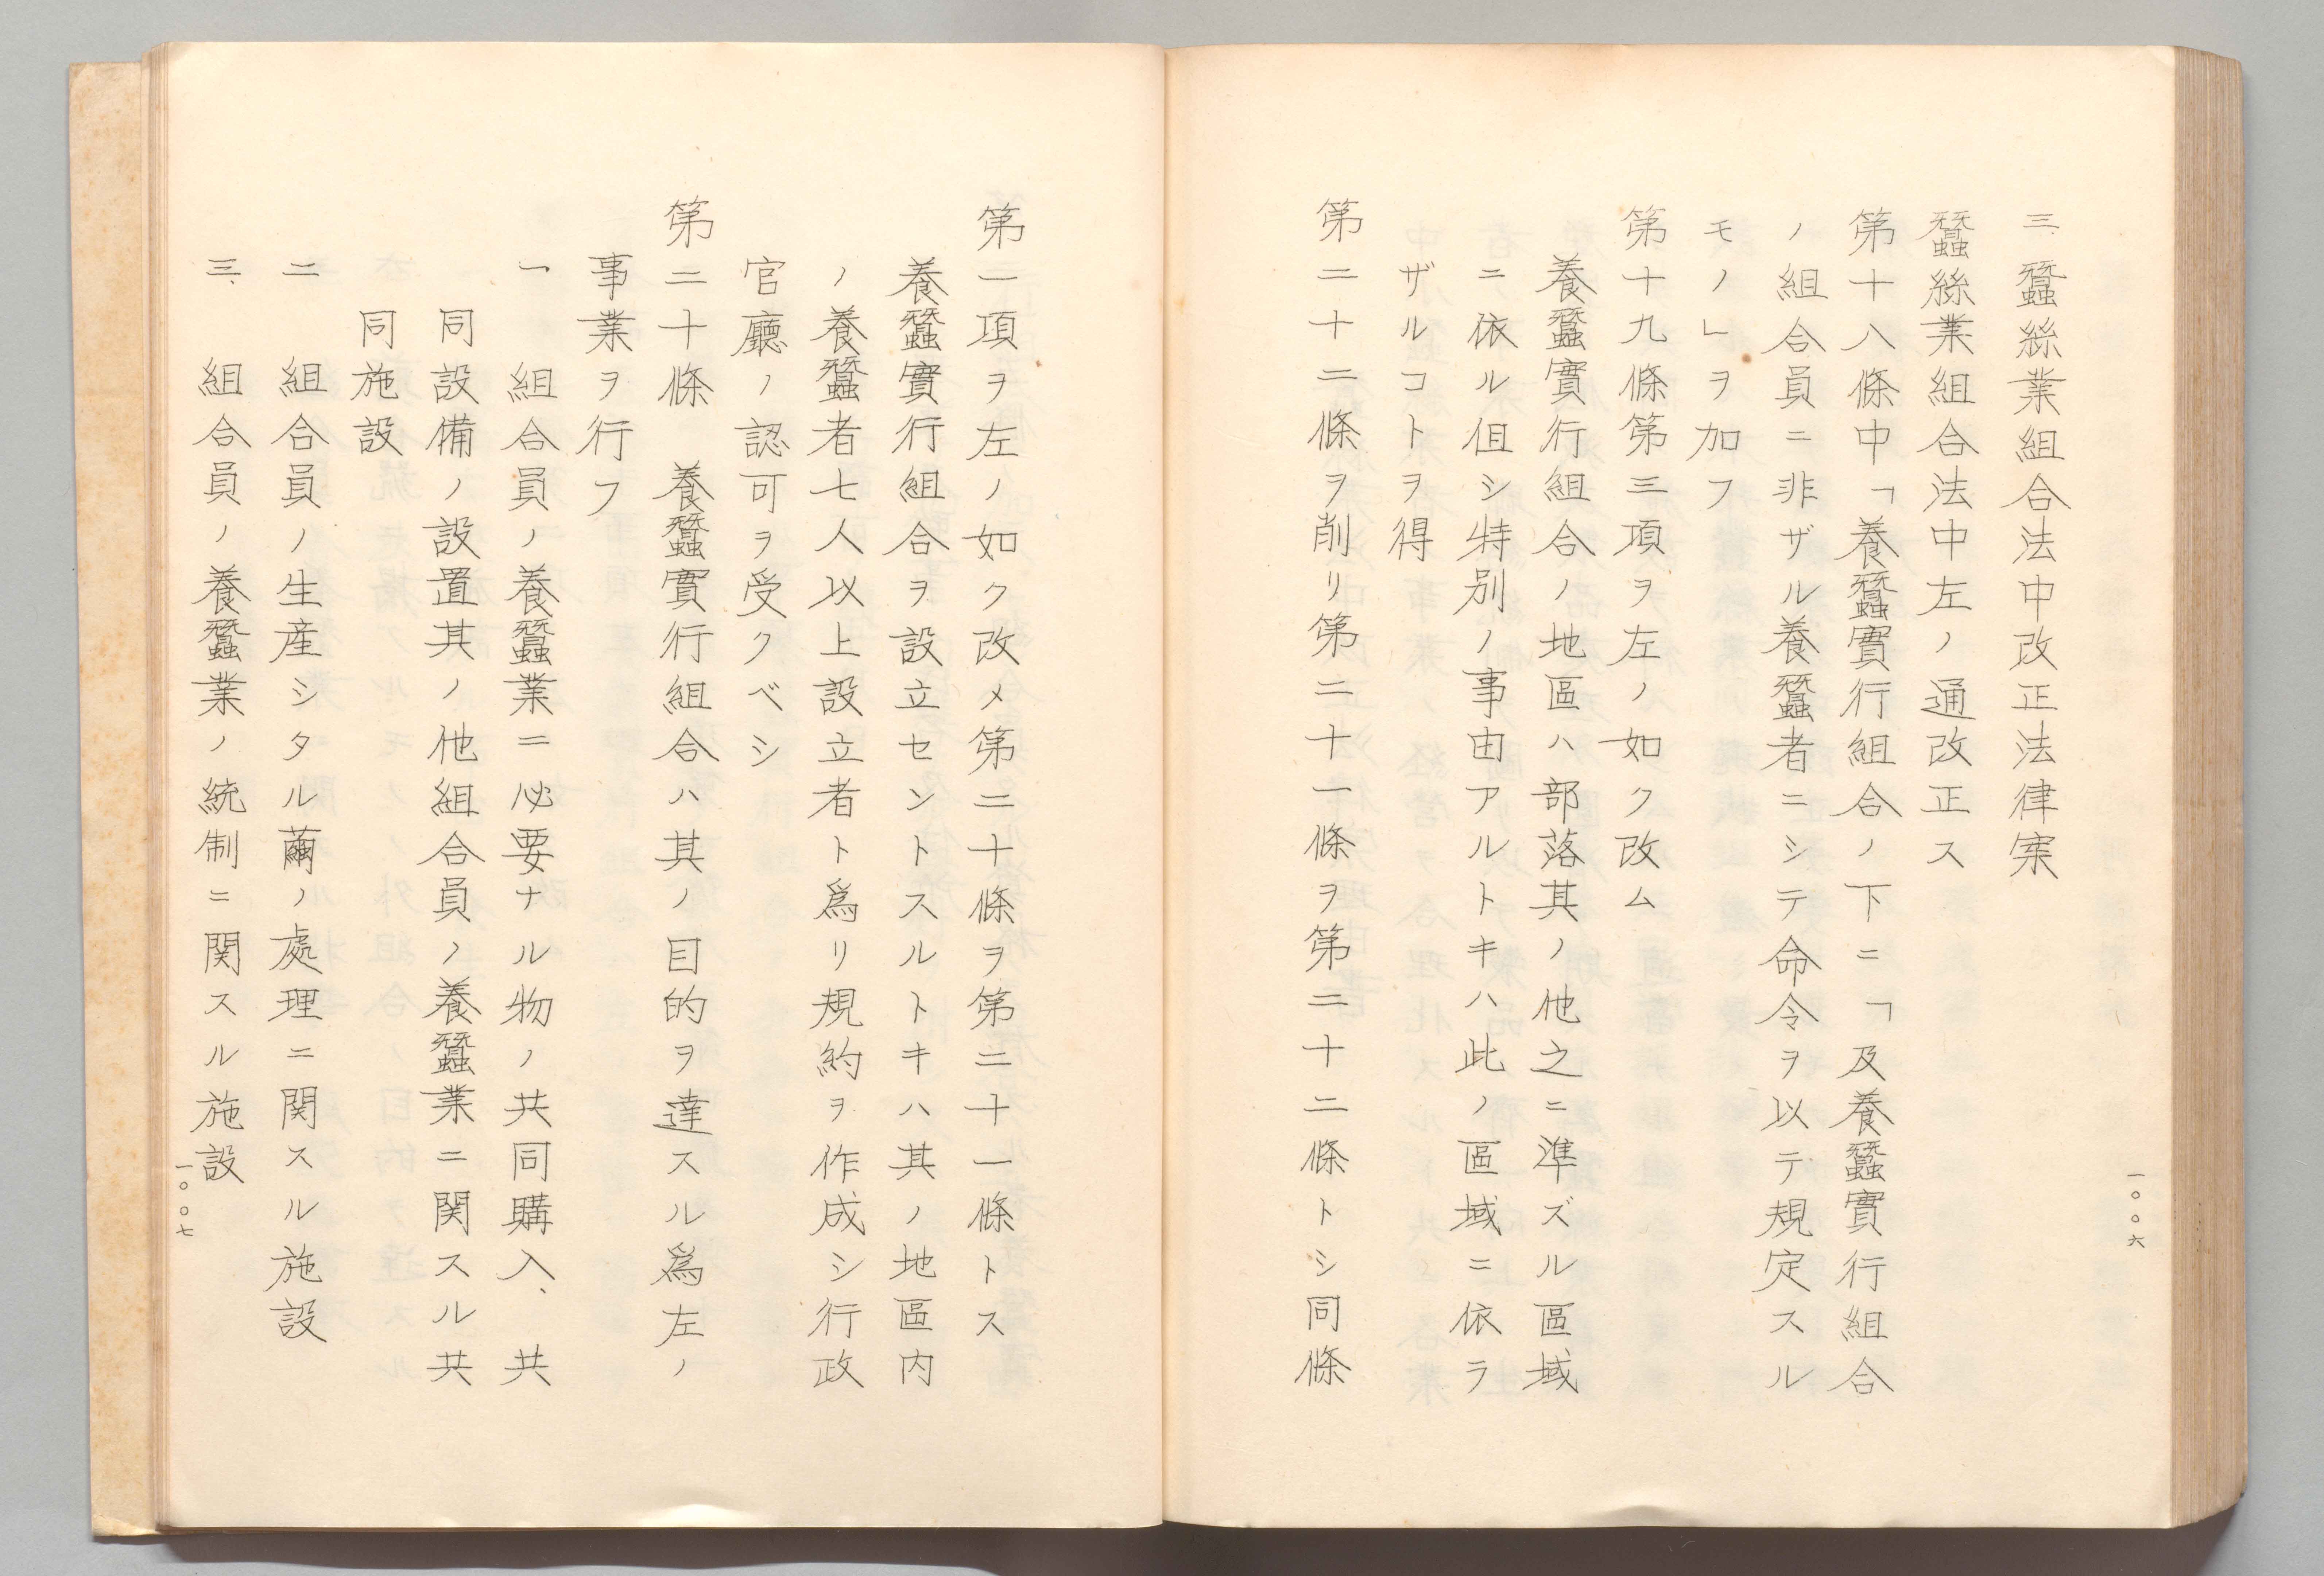 三、蠶絲業組合法中改正法律案
蠶絲業組合法中左ノ通改正ス
第十八條中「養蠶實行組合ノ下ニ「及養蠶實行組合
ノ組合員ニ非ザル養蠶者ニシテ命令ヲ以テ規定スル
モノ」ヲ加フ
第十九條第三項ヲ左ノ如ク改ム
養蠶實行組合ノ地區ハ部落其ノ他之ニ準ズル區域
ニ依ル但シ特別ノ事由アルトキハ此ノ區域ニ依ラ
ザルコトヲ得
第二十二條ヲ削リ第二十一條ヲ第二十二條トシ同條
一〇〇六
第一項ヲ左ノ如ク改メ第二十條ヲ第二十一條トス
養蠶實行組合ヲ設立セントスルトキハ其ノ地區内
ノ養蠶者七人以上設立者ト爲リ規約ヲ作成シ行政
官廳ノ認可ヲ受クベシ
第二十條　養蠶實行組合ハ其ノ目的ヲ達スル爲左ノ
事業ヲ行フ
一　組合員ノ養蠶業ニ必要ナル物ノ共同購入、共
同設備ノ設置其ノ他組合員ノ養蠶業ニ関スル共
同施設
二　組合員ノ生産シタル繭ノ處理ニ関スル施設
三、　組合員ノ養蠶業ノ統制ニ関スル施設
一〇〇七